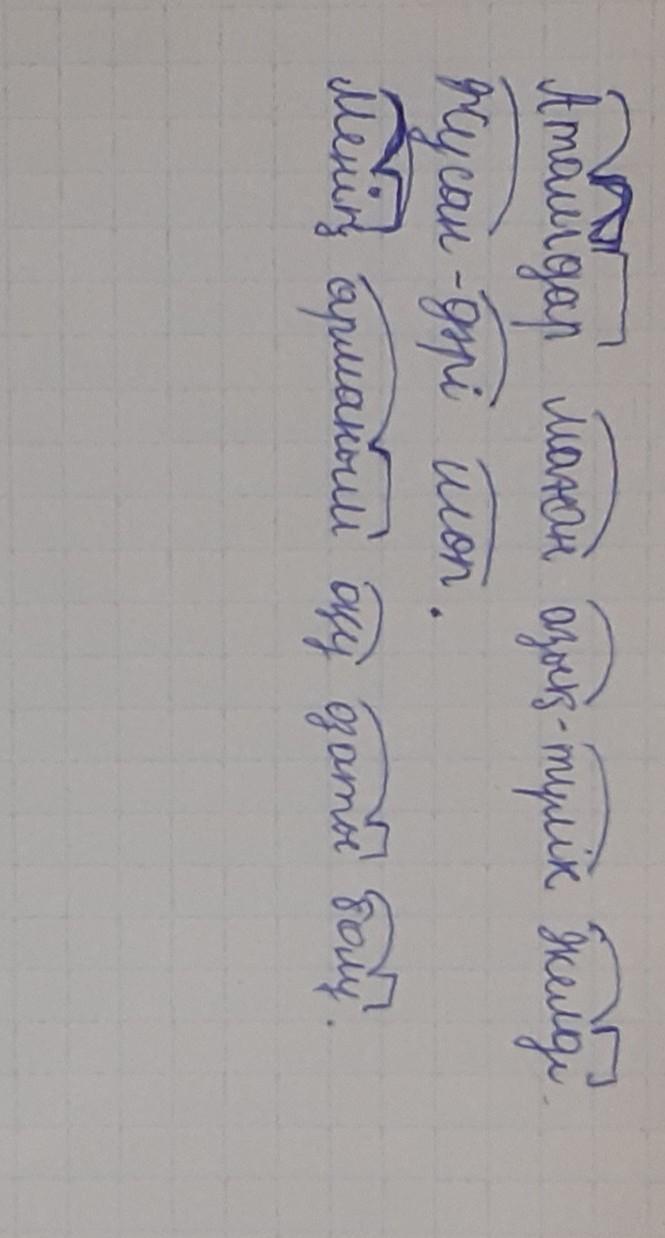 Аталғдар мағон азық-түлік әкелді.
Жусан - дәрі шөп.
Менің арманым оқу озаты болу.